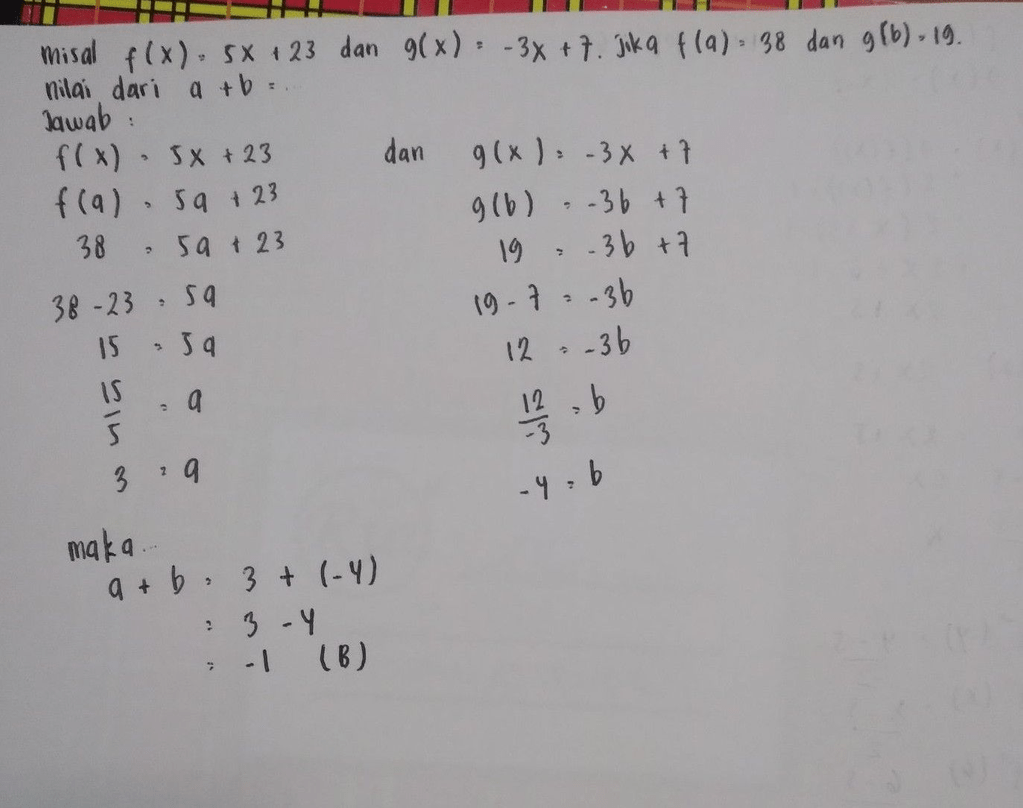 misal f(x) = 5x + 23 dan g(x) = -3x + 7. Jika f(a) = 38 dan g(b) = 19.
nilai dari a + b = ...
Jawab :
f(x) = 5x + 23 dan g(x) = -3x + 7
f(a) = 5a + 23 g(b) = -3b + 7
38 = 5a + 23 19 = -3b + 7
38 - 23 = 5a 19 - 7 = -3b
15 = 5a 12 = -3b
15/5 = a 12/-3 = b
3 = a -4 = b
maka...
a + b = 3 + (-4)
= 3 - 4
= -1 (B)